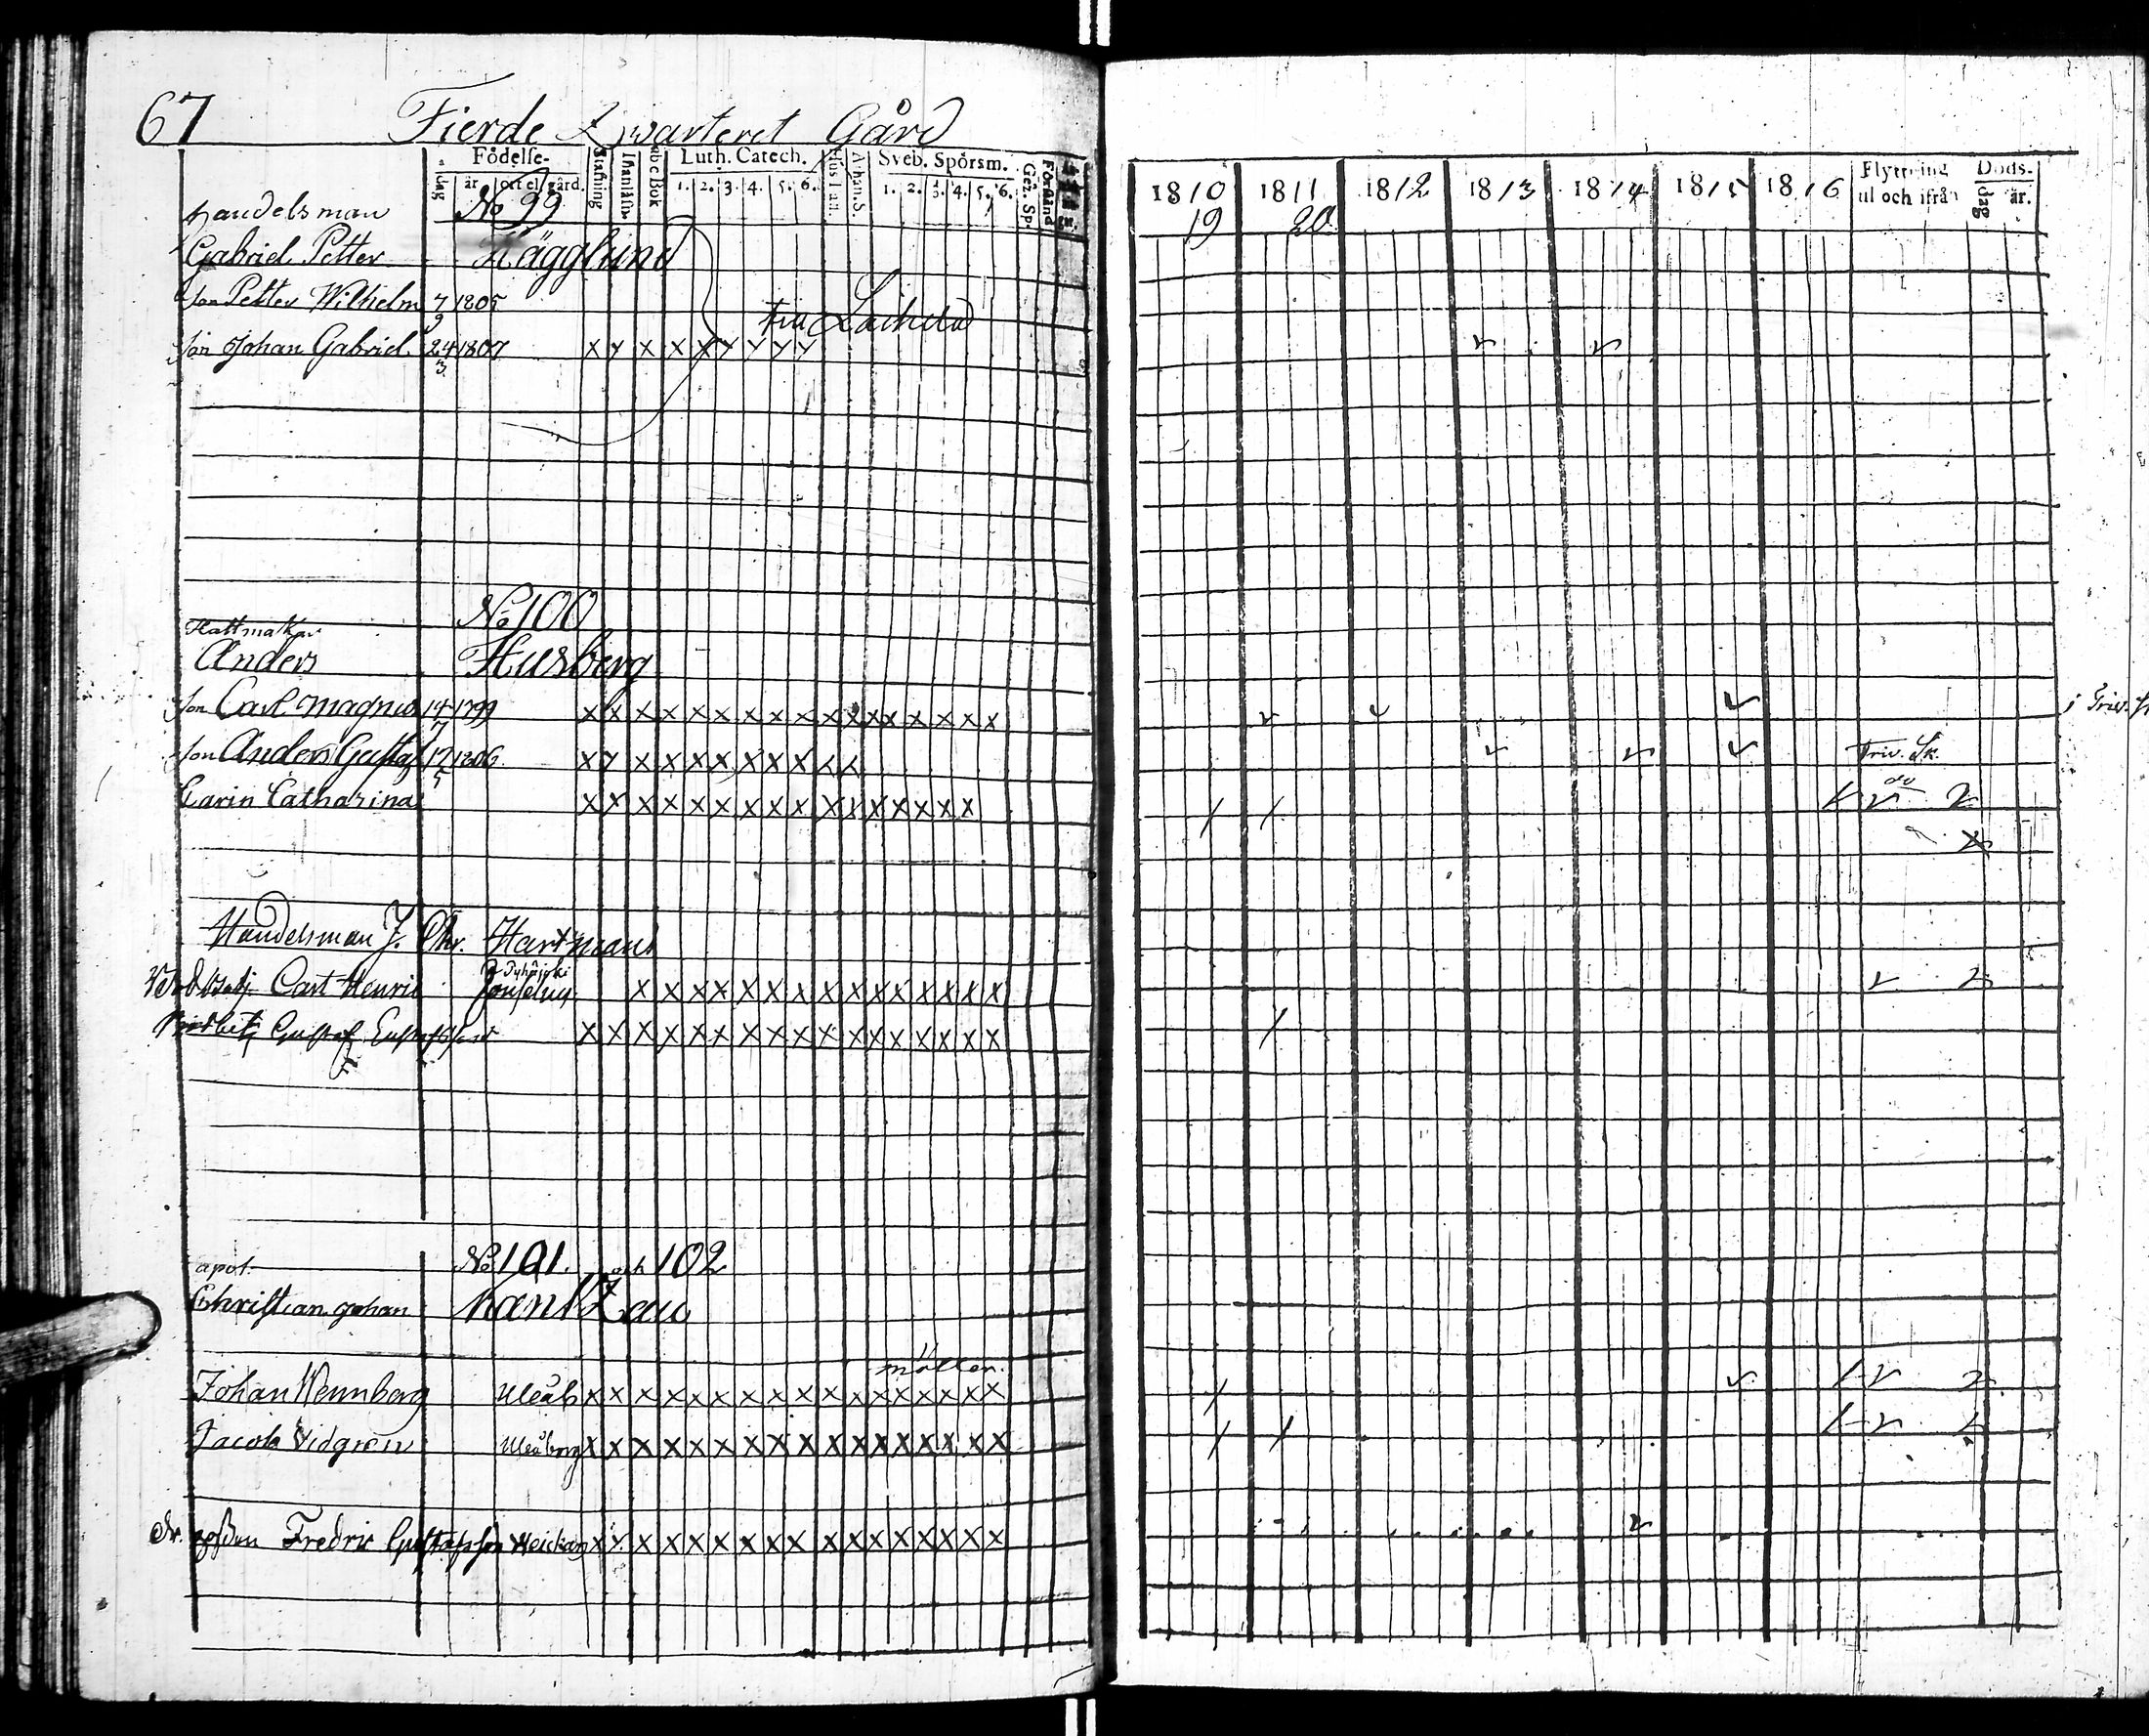 67 Fierde Qwarteret Gård
Födelse-
dag år ort el. gård.
Stafning
Innanläsn.
abc Bok
Luth. Catech.
1. 2. 3. 4. 5. 6.
Athan. S.
Sveb. Spörsm.
1. 2. 3. 4. 5. 6.
Gez. Sp.
Förstånd
1810 1811 1812 1813 1814 1815 1816
19 20
Flyttning
til och ifrån
Döds-
dag år.
handelsman No 99
Gabriel Petter Hägglund
Son Petter Wilhelm 7/9 1805
Son Johan Gabriel 24/3 1807 x x x x x x x x x
No 100
Hattmakar
Anders Husberg
Son Carl Magnus 14/7 1799 x x x x x x x x x x x x x x x x x
Son Anders Gustaf 17/5 1806 x x x x x x x x x x x Triv. Sk.
Carin Catharina x x x x x x x x x x x x x x x x do
Handelsman J. Chr. Hartman
Bodbetj. Carl Henric x x x x x x x x x x x x x x x
Bodbetj Gustaf Gustafsson x x x x x x x x x x x x x x x x x
apot. No 101. och 102
Christian Johan
Johan Wennberg Uleåb x x x x x x x x x x x x x x x x x
Jacob Widgren Uleåborg x x x x x x x x x x x x x x x x x
Fredric Gustafson x x x x x x x x x x x x x x x x x